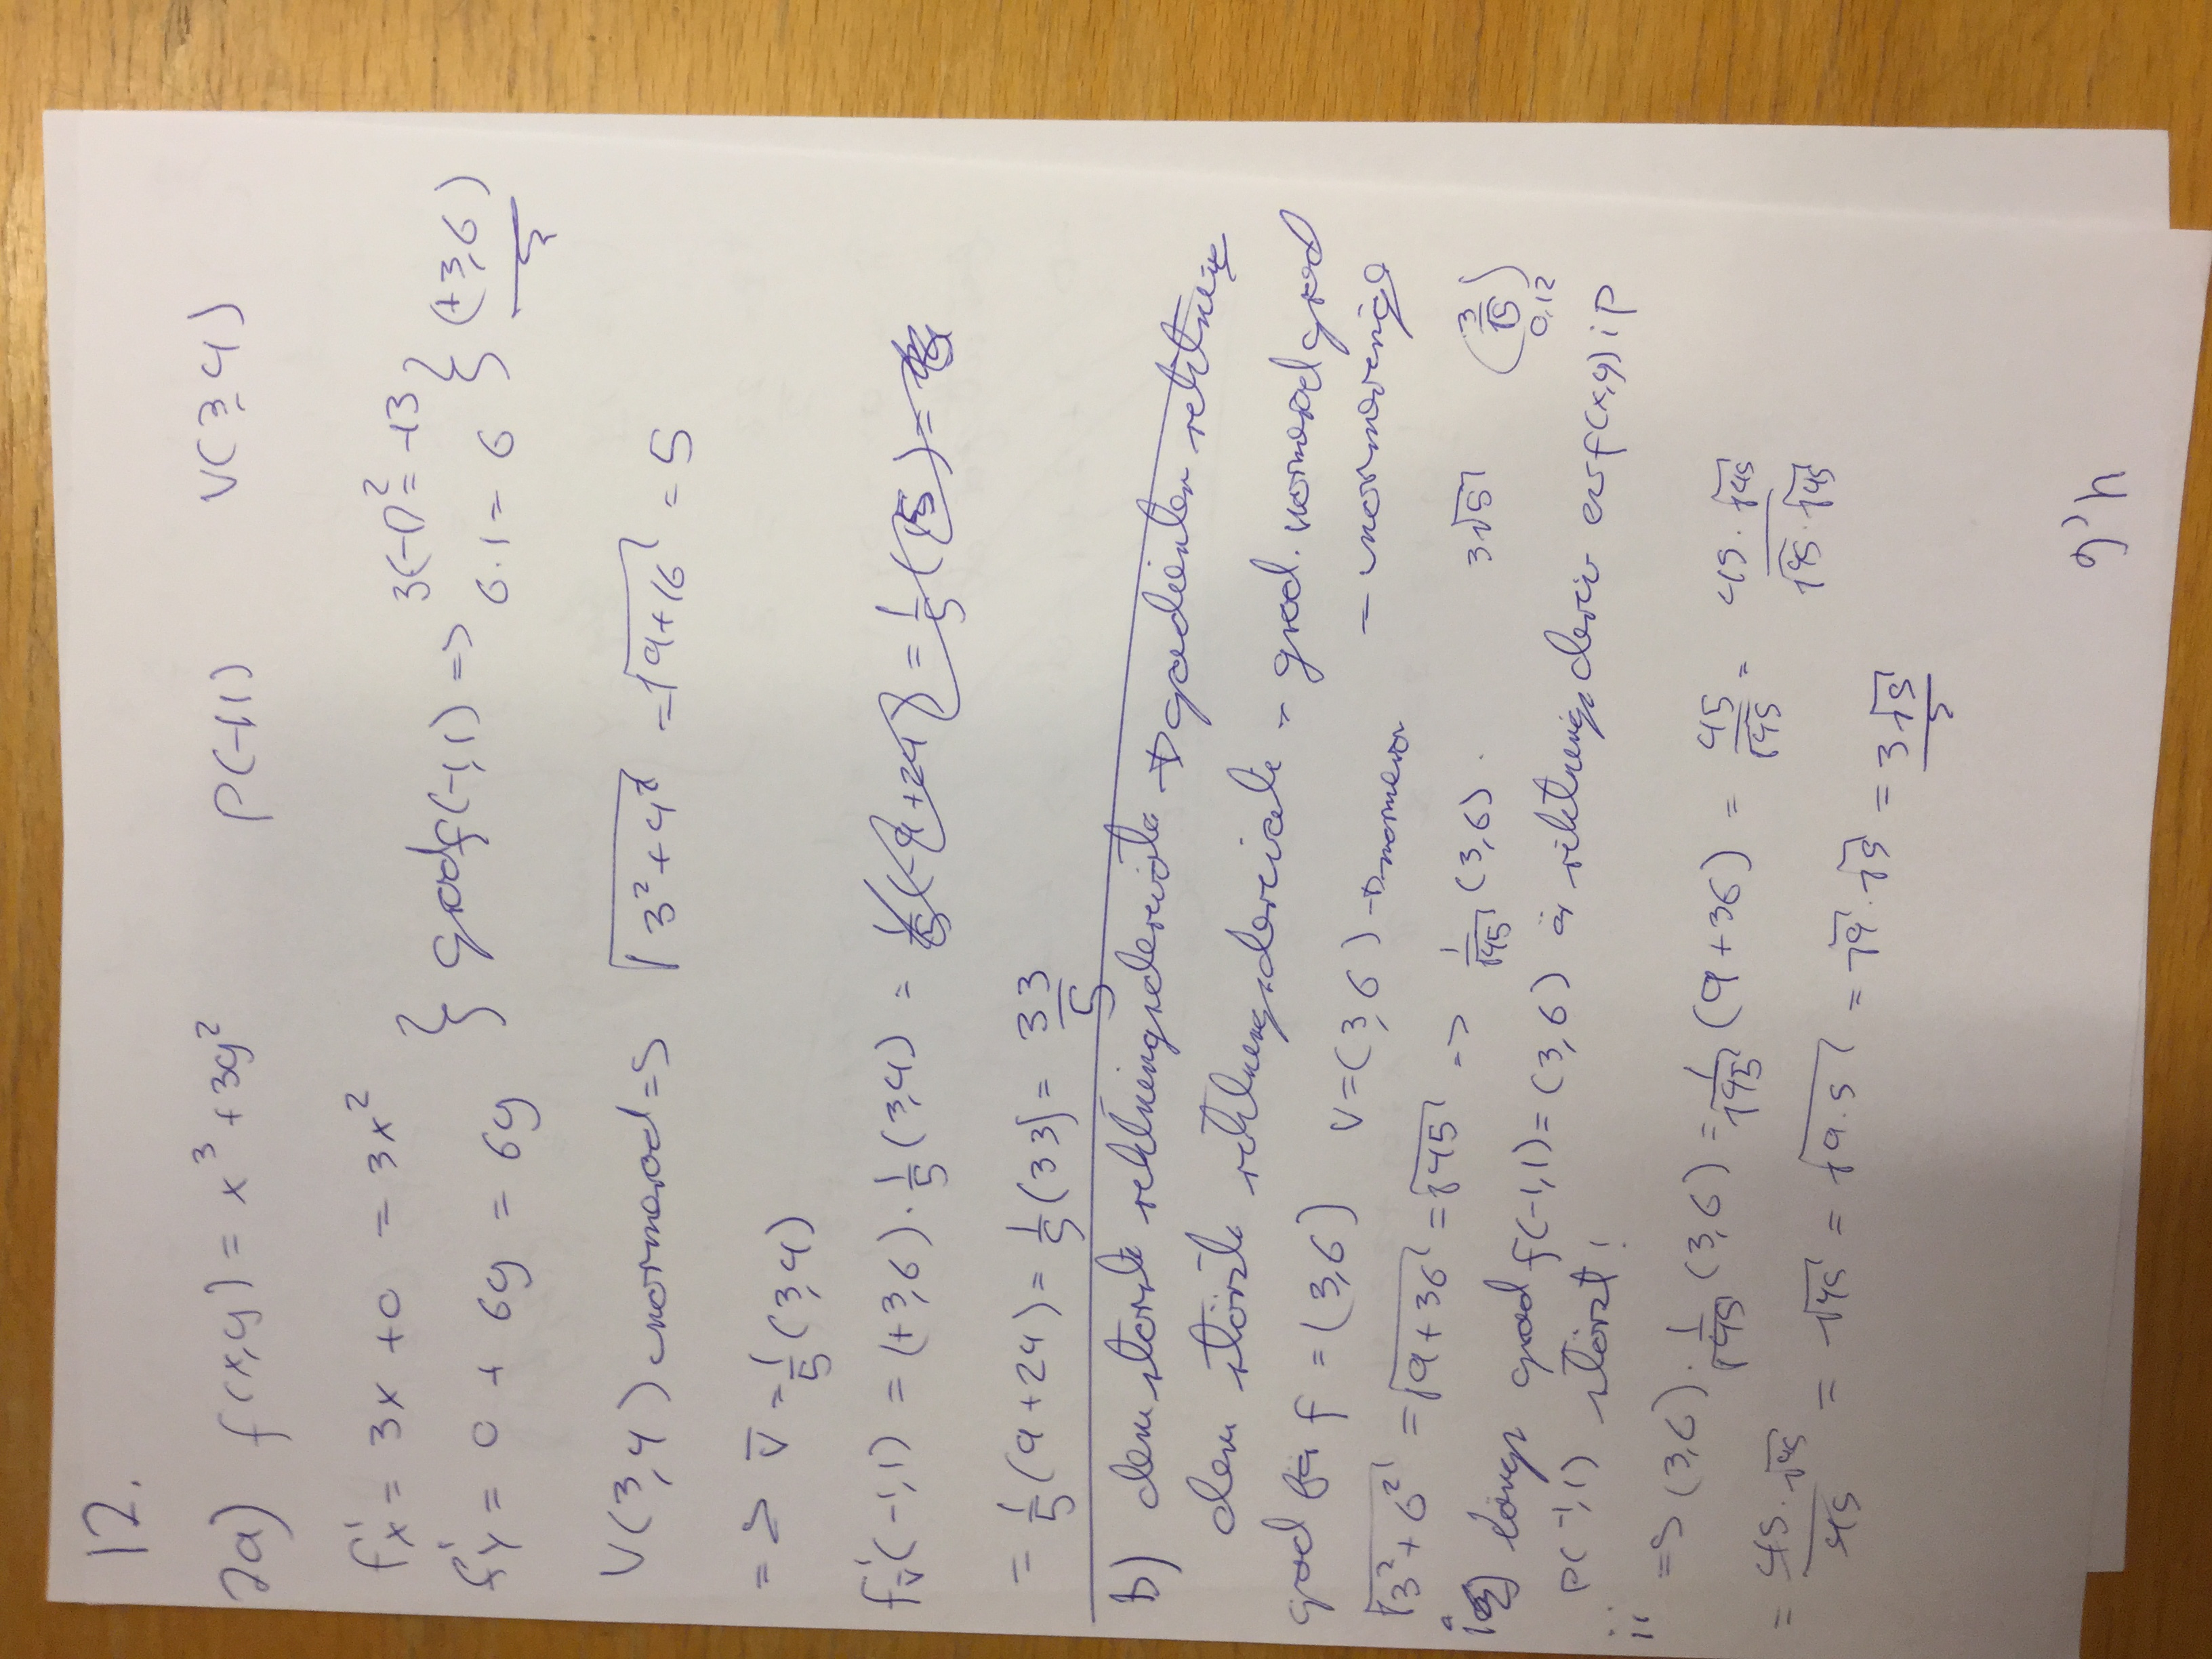 12.
2a) f(x,y) = x³ + 3y² P(-1,1) V(3,4)
f'x = 3x + 0 = 3x² } gradf(-1,1) => 3(-1)² = +3 } (+3,6)
f'y = 0 + 6y = 6y 6·1 = 6
V(3,4) normerad => √(3²+4²) = √(9+16) = 5
=> v̄ = 1/5 (3,4)
f'v̄(-1,1) = (+3,6)·1/5 (3,4) = 1/5 (-9+24) = 1/5 (15) =
= 1/5 (9+24) = 1/5 (33) = 33/5
b) den störste riktningsderivata → gradienten riktning
den störste riktningsderivata = grad. normerad grad
grad för f = (3,6) V=(3,6) → normera = normering
√(3²+6²) = √(9+36) = √45 => 1/√45 (3,6). 3√5 (3/√5) 0,12
i) längs grad f(-1,1) = (3,6) är riktningsderiv av f(x,y) i p
P(-1,1) störst!
ii => (3,6)·1/√45 (3,6) = 1/√45 (9+36) = 45/√45 = 45·√45/√45·√45
= 45·√45/45 = √45 = √(9·5) = √9·√5 = 3√5
4,6